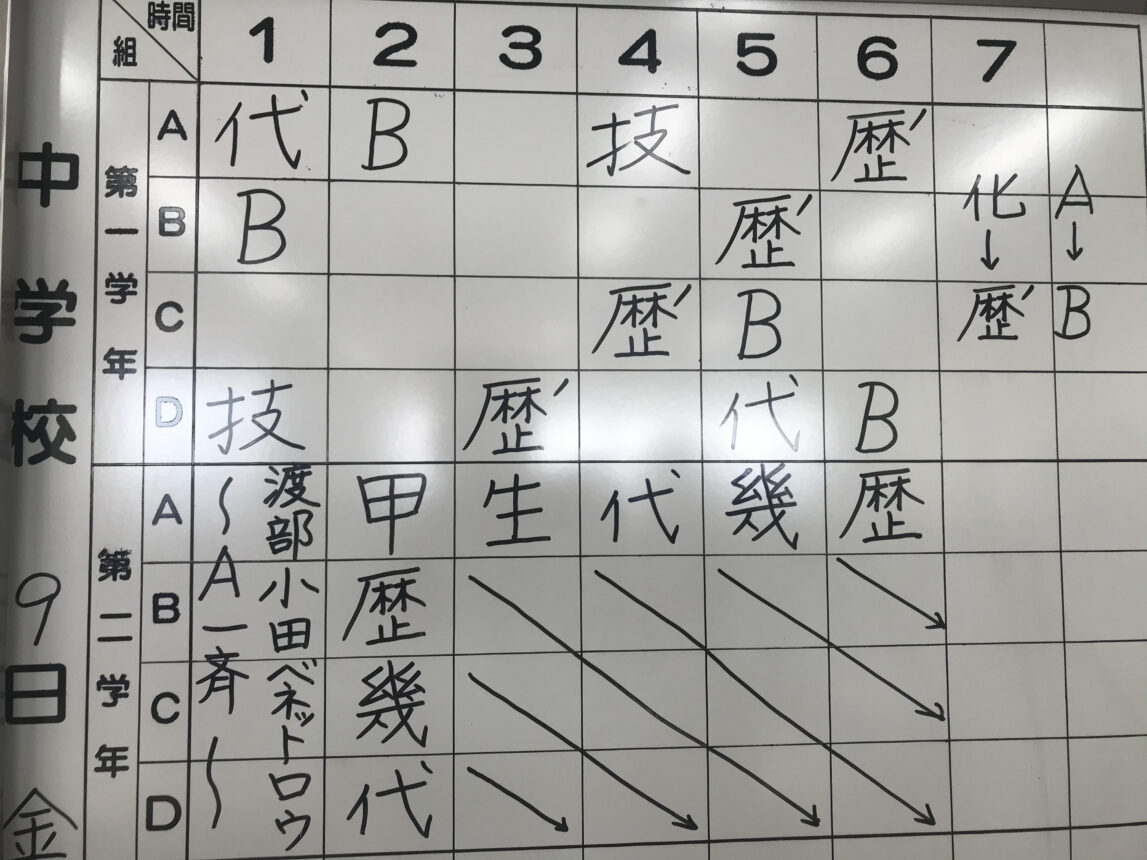 時間 1 2 3 4 5 6 7
組
中学校
9日 金
第一学年
A 代 B 技 歴′
B B 歴′ 化 A
↓ ↓
C 歴′ B 歴′ B
D 技 歴′ 代 B
第二学年
〜A一斉〜
A 渡部 甲 生 代 幾 歴
B 小田 歴
C ベネット 幾
D ロウ 代